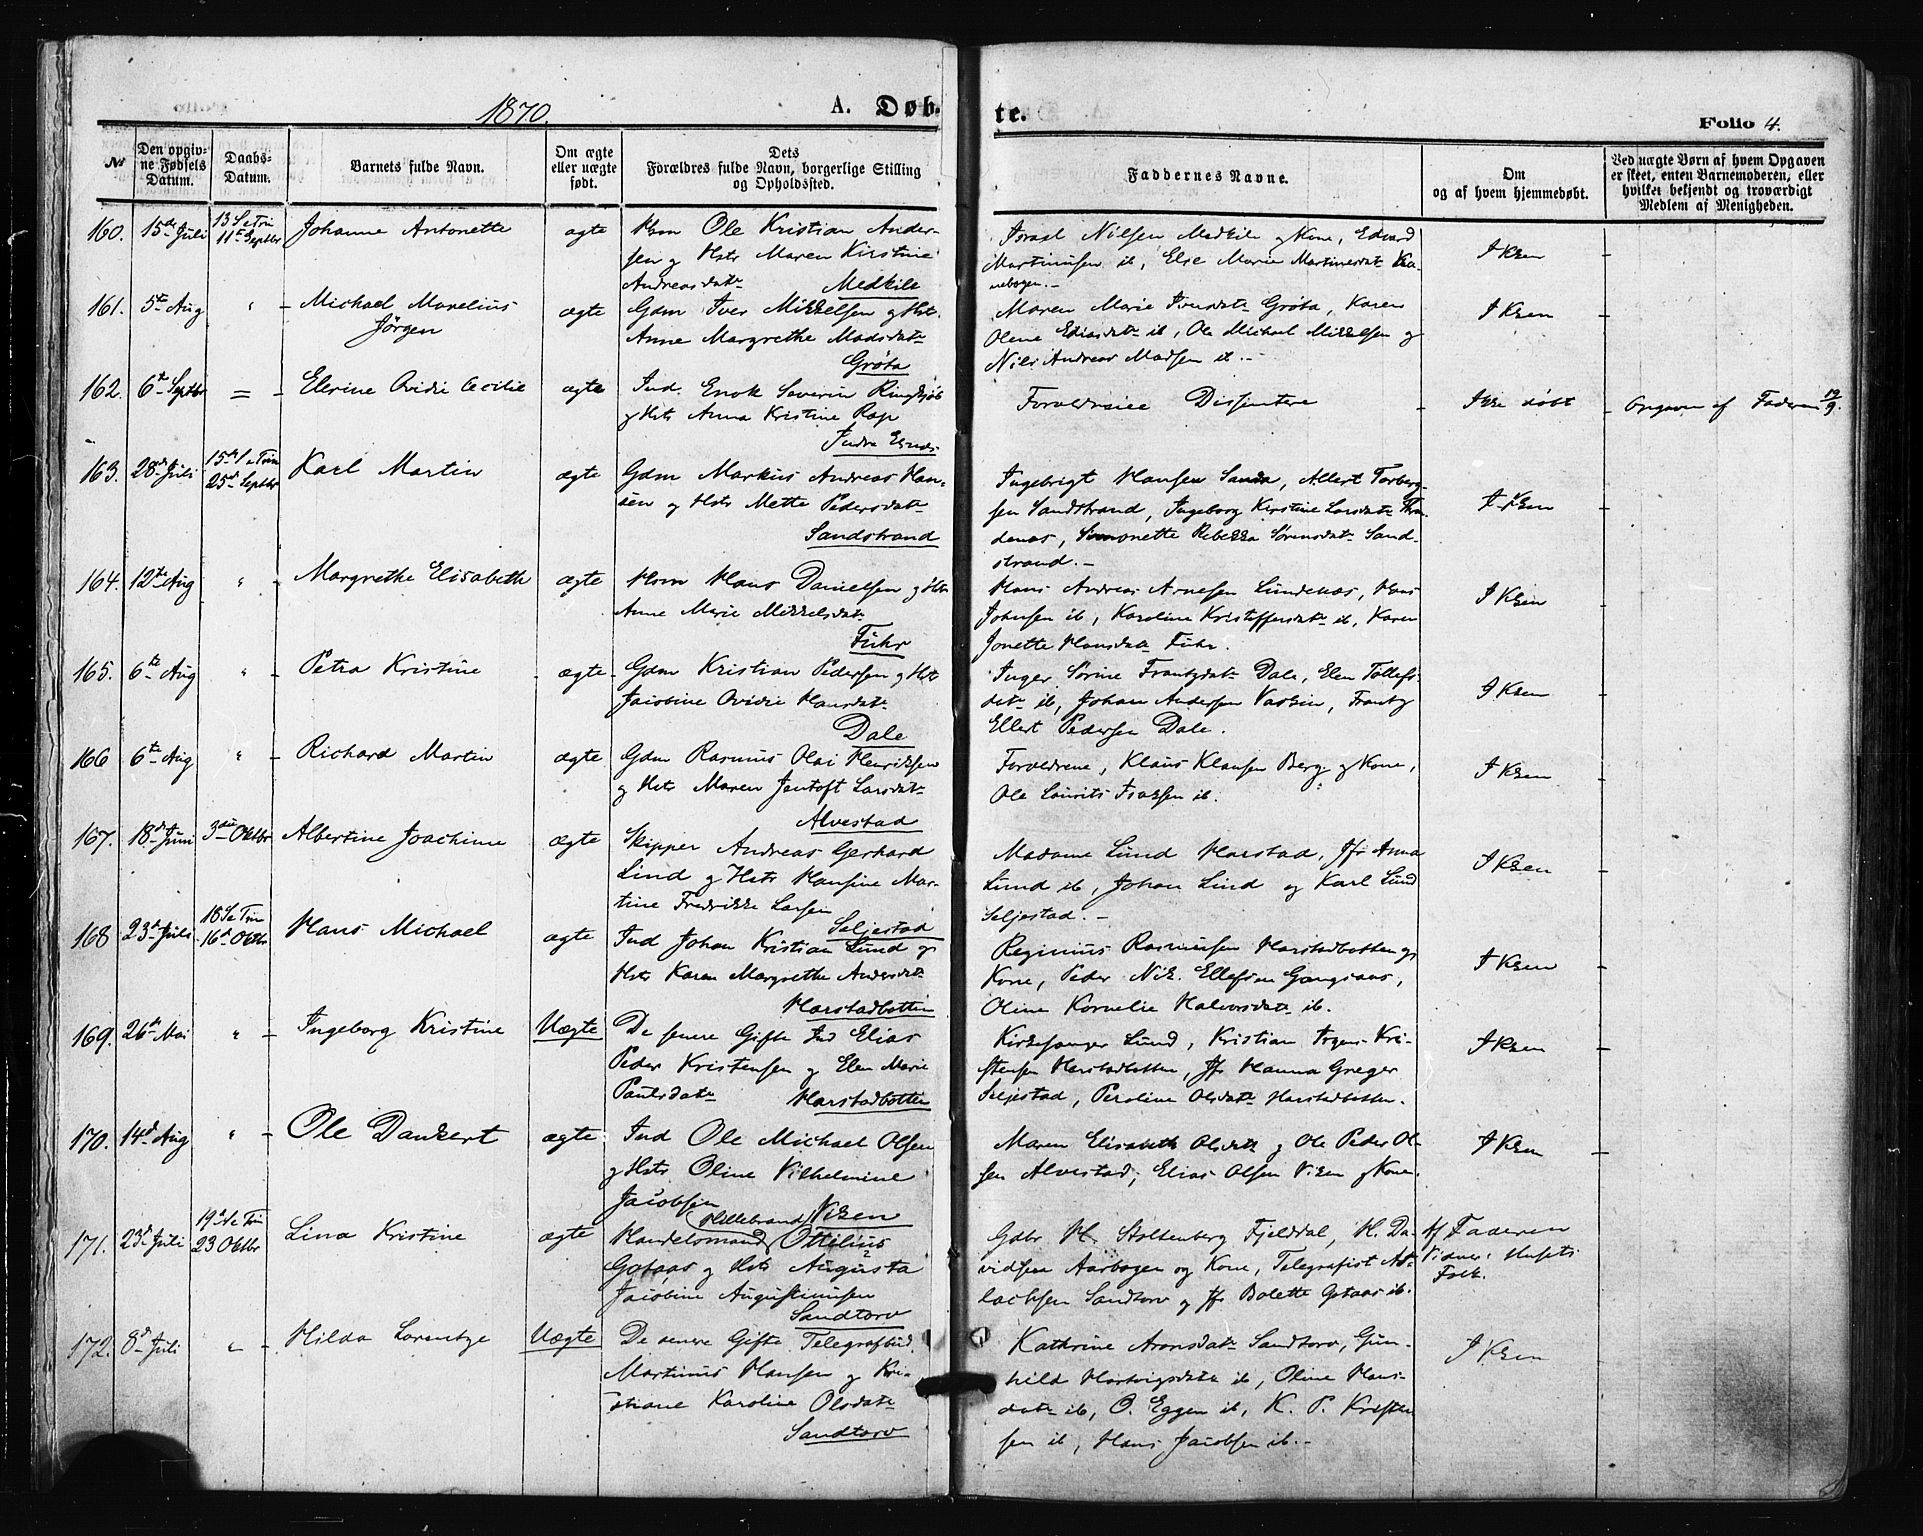 1870.
A. Døb-
te.
Folio 4.
№
Den opgiv-
ne Fødsels
Datum.
Daabs-
Datum.
Barnets fulde Navn.
Om ægte
eller uægte
født.
Dets
Forældres fulde Navn, borgerlige Stilling
og Opholdssted.
Faddernes Navne.
Om
og af hvem hjemmedøbt.
Ved uægte Børn af hvem Opgaven
er skeet, enten Barnemoderen, eller
hvilket bekjendt og troværdigt
Medlem af Menigheden.
160. 15de Juli
13 S e Trin
11te Septbr
Johanne Antonette
ægte
Hsm Ole Kristian Ander-
sen og Hstr Maren Kirstine
Andreasdatr Medkile
Israel Nilsen Medkile og Kone, Edvard
Martinusen ib, Else Marie Martinesdatr
I Kken
161. 5te Aug
"
Michael Marelius
Jørgen
ægte
Gdm Iver Mikkelsen og Hst.
Anne Margrethe Madsdatr
Grøta
Maren Marie Iversdatr Grøta, Karen
Olene Ediasdatr ib, Ole Michael Mikkelsen og
Nils Andreas Madsen ib. -
I Kken
162. 6te Septbr
=
Elerine Ovidie Cecilie
ægte
Ind. Enok Severin
og Hstr Anna Kristine
Indre
Forældrene Dissentere
Ikke døbt
Opgaven af Faderen 12/9.
163. 28de Juli
15de S e Trin
25de Septbr
Karl Martin
ægte
Gdm Markus Andreas Han-
sen og Hstr Mette Pedersdatr
Sandstrand
Ingebrigt Hansen Sanda, Albert Torberg-
sen Sandstrand, Ingeborg Kirstine Larsdatr Thron-
denæs, Simonette Rebekka Sørensdatr Sand-
strand. -
I Kken
164. 12te Aug
"
Margrethe Elisabeth
ægte
Hsm Hans Danielsen og Hstr
Anne Marie Mikkelsdatr
Fuhr
Hans Andreas Arnesen Lundenæs, Hans
Johnsen ib, Karoline Kristoffersdatr ib, Karen
Jonette Hansdatr Fuhr.
I Kken
165. 6te Aug
"
Petra Kristine
ægte
Gdm Kristian Pedersen og Hstr
Jacobine Ovidie Hansdatr
Dale
Inger Sørine Frantzdatr Dale, Elen Tollefs-
datr ib, Johan Andersen Vassin, Frantz
Ellert Pedersen Dale.
I Kken
166 6te Aug
"
Richard Martin
ægte
Gdm Rasmus Olai Henriksen
og Hstr Maren Jentoft Larsdatr
Alvestad
Forældrene, Klaus Klausen Berg og Kone,
Ole Laurits Isaksen ib.
I Kken
167. 18de Juni
3die Oktbr
Albertine Joachime
ægte
Skipper Andreas Gerhard
Lind og Hstr Hansine Mar-
tine Fredrikke Larsen
Seljestad
Madame Lund Harstad, Jfr Anna
Lund ib, Johan Lind og Karl Lund
Seljestad. -
I Kken
168 23de Juli
18 S e Trin
16de Oktbr
Hans Michael
ægte
Ind Johan Kristian Lund og
Hstr Karen Margrethe Andersdatr
Harstadbotten
Reginius Rasmussen Harstadbotten og
Kone, Peder Nik. Ellefsen Gangsaas,
Oline Kornelie Halvorsdatr ib.
I Kken
169. 26de Mai
"
Ingeborg Kristine
Uægte
De senere Gifte Ind Elias
Peder Kristensen og Elen Marie
Paulsdatr Harstadbotten
Kirkesanger Lund, Kristian Kri-
stensen Harstadbotten, Jfr Hanna Greger
Seljestad, Peroline Olsdatr Harstadbotten.
I Kken
170. 14de Aug
"
Ole Dankert
ægte
Ind Ole Michael Olsen
og Hstr. Oline Vilhelmine
Jacobsen Viken
Maren Elisabeth Olsdatr og Ole Peder Ol-
sen Alvestad, Elias Olsen Viken og Kone.
I Kken
171. 23de Juli
19de S e Trin
23 Oktbr
Lina Kristine
ægte
Hillebrand
Handelsmand Ottilius
Gotaas og Hstr Augusta
Jacobine Augustinusen
Sandtorv
Gdbr H. Stoltenberg Fjelddal, H. Da-
vidsen Aarbogen og Kone, Telegrafist
Sandtorv og Jfr Bolette Gotaas ib.
Af Faderen
Vidner: Husets
Folk.
172. 8de Juli
"
Hilda Lorentze
Uægte
De senere Gifte Telegrafbud
Martinus Hansen og Kri-
stiane Karoline Olsdatr
Sandtorv
Kathrine Aronsdatr Sandtorv, Gun-
hild Hartvigsdatr ib, Oline Hans-
datr ib, O. Eggen ib, K. P. Kristen-
sen ib, Hans Jacobsen ib. -
I Kken